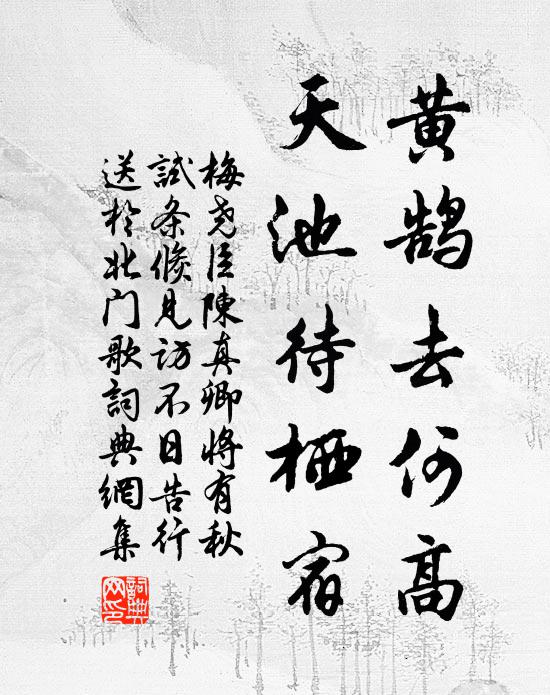 黄鹄去何高
天池待栖宿
梅尧臣陳真卿將有秋
試条倏見訪不日告行
送於北门歌詞典網集